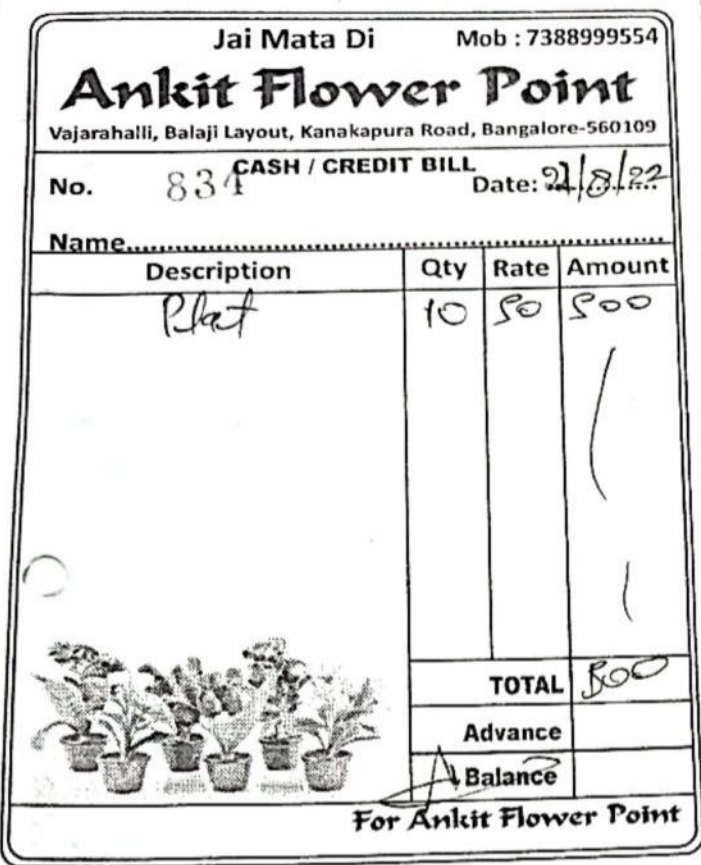 Jai Mata Di Mob : 7388999554
Ankit Flower Point
Vajarahalli, Balaji Layout, Kanakapura Road, Bangalore-560109
CASH / CREDIT BILL
No. 834 Date: 21/8/22
Name
Description Qty Rate Amount
Plat 10 50 500
TOTAL 500
Advance
Balance
For Ankit Flower Point